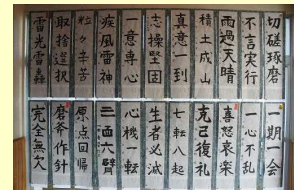 切磋琢磨
不言実行
雨過天晴
積土成山
志操堅固
一意専心
疾風雷神
粒々辛苦
取捨選択
一期一会
一心不乱
喜怒哀楽
克己復礼
七転八起
生者必滅
心機一転
三面六臂
原点回帰
磨斧作針
完全無欠